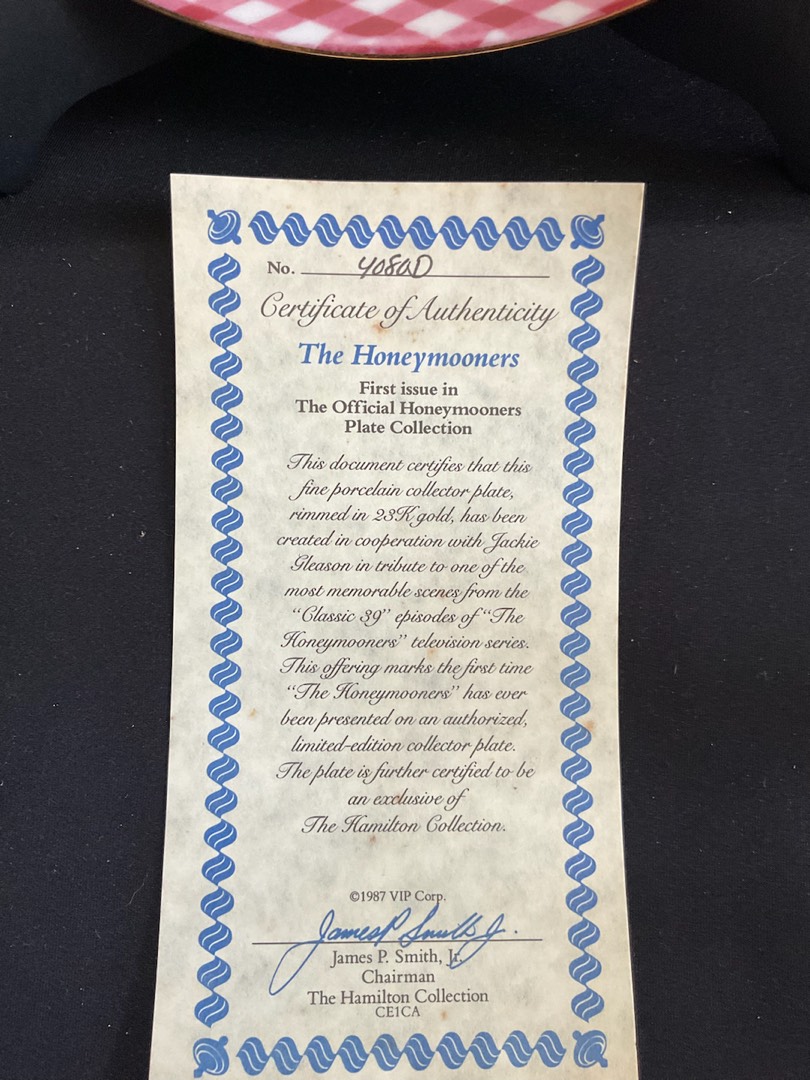 No. 4080D
Certificate of Authenticity
The Honeymooners
First issue in
The Official Honeymooners
Plate Collection
This document certifies that this
fine porcelain collector plate,
rimmed in 23K gold, has been
created in cooperation with Jackie
Gleason in tribute to one of the
most memorable scenes from the
“Classic 39” episodes of “The
Honeymooners” television series.
This offering marks the first time
“The Honeymooners” has ever
been presented on an authorized,
limited-edition collector plate.
The plate is further certified to be
an exclusive of
The Hamilton Collection.
©1987 VIP Corp.
James P Smith Jr.
James P. Smith, Jr.
Chairman
The Hamilton Collection
CE1CA